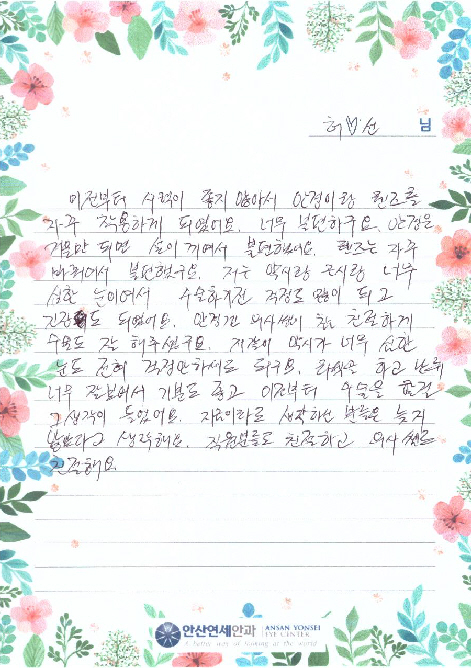 허♡선 님
이전부터 시력이 좋지 않아서 안경이랑 렌즈를
자꾸 착용하게 되었어요. 너무 불편하구요. 안경은
겨울만 되면 성이 끼여서 불편했어요. 렌즈는 자꾸
불편했구요. 저는 막시랑 근시랑 너무
심한 눈이여서 수술하기전 걱정도 많이 되고
긴장도 되었어요. 안경간 의사쌤이 참 친절하게
수술도 잘 해주셨구요. 저같이 막시가 너무 심한
분도 전혀 걱정안하셔도 되구요. 하고 난 후
너무 잘보여서 기분도 좋고 이전부터 수술을 할걸
그생각이 들었어요. 지금이라도 생각하신 분들은 늦지
않았다고 생각해요. 직원분들도 친절하고 의사 쌤도
친절해요.
안산연세안과
ANSAN YONSEI
EYE CENTER
A better way of looking at the world